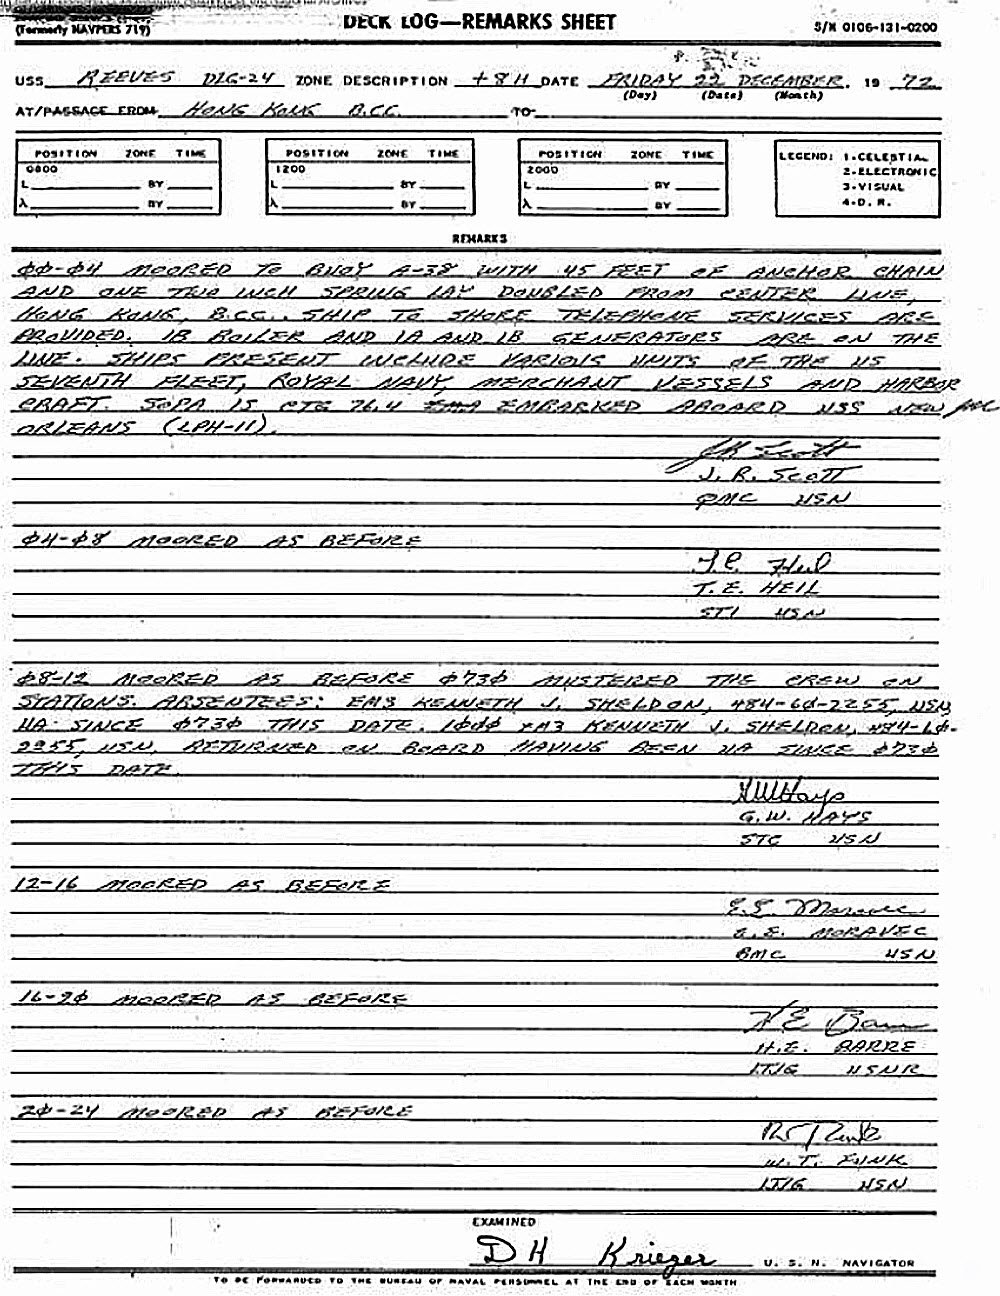 (Formerly NAVPERS 719)
DECK LOG—REMARKS SHEET
S/N 0106-131-0200
USS REEVES DLG-24 ZONE DESCRIPTION +8H DATE FRIDAY 22 DECEMBER, 19 72
(Day) (Date) (Month)
AT/PASSAGE FROM HONG KONG B.C.C. TO
POSITION ZONE TIME
0800
L BY
λ BY
POSITION ZONE TIME
1200
L BY
λ BY
POSITION ZONE TIME
2000
L BY
λ BY
LEGEND: 1-CELESTIAL
2-ELECTRONIC
3-VISUAL
4-D. R.
REMARKS
00-04 MOORED TO BUOY A-38 WITH 45 FEET OF ANCHOR CHAIN
AND ONE TWO INCH SPRING LAY DOUBLED FROM CENTER LINE,
HONG KONG, B.C.C.. SHIP TO SHORE TELEPHONE SERVICES ARE
PROVIDED. 1B BOILER AND 1A AND 1B GENERATORS ARE ON THE
LINE. SHIPS PRESENT INCLUDE VARIOUS UNITS OF THE US
SEVENTH FLEET, ROYAL NAVY, MERCHANT VESSELS AND HARBOR
CRAFT. SOPA IS CTG 76.4 EMBARKED ABOARD USS NEW
ORLEANS (LPH-11).
JR Scott
J. R. SCOTT
QMC USN
04-08 MOORED AS BEFORE
T. E. Heil
T. E. HEIL
ST1 USN
08-12 MOORED AS BEFORE 0730 MUSTERED THE CREW ON
STATIONS. ABSENTEES: EM3 KENNETH J. SHELDON, 484-60-2255, USN
UA SINCE 0730 THIS DATE. 1000 EM3 KENNETH J. SHELDON, 484-60-
2255, USN, RETURNED ON BOARD HAVING BEEN UA SINCE 0730
THIS DATE.
GW Hays
G. W. HAYS
STC USN
12-16 MOORED AS BEFORE
E. E. Moravec
E. E. MORAVEC
BMC USN
16-20 MOORED AS BEFORE
H E Barre
H. E. BARRE
LTJG USNR
20-24 MOORED AS BEFORE
W T Funk
W. T. FUNK
LTJG USN
EXAMINED
D H Krieger U. S. N. NAVIGATOR
TO BE FORWARDED TO THE BUREAU OF NAVAL PERSONNEL AT THE END OF EACH MONTH